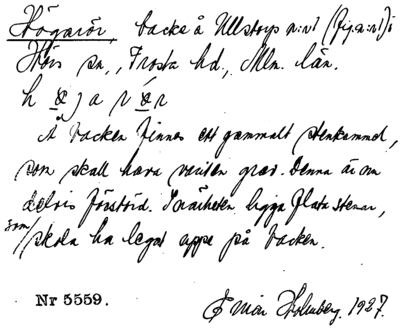 Högarör, backe å Ullstorps n:r 1 (fig. n:r 1) i
Hörs sn., Frosta hd., Mlm. län.
Å backen finnes ett gammalt stenkummel,
som skall hava varit en grav. Denna är nu
delvis förstörd. I närheten ligga flata stenar,
som skola ha legat uppe på backen.
Nr 5559.
Einar Holmberg. 1927.